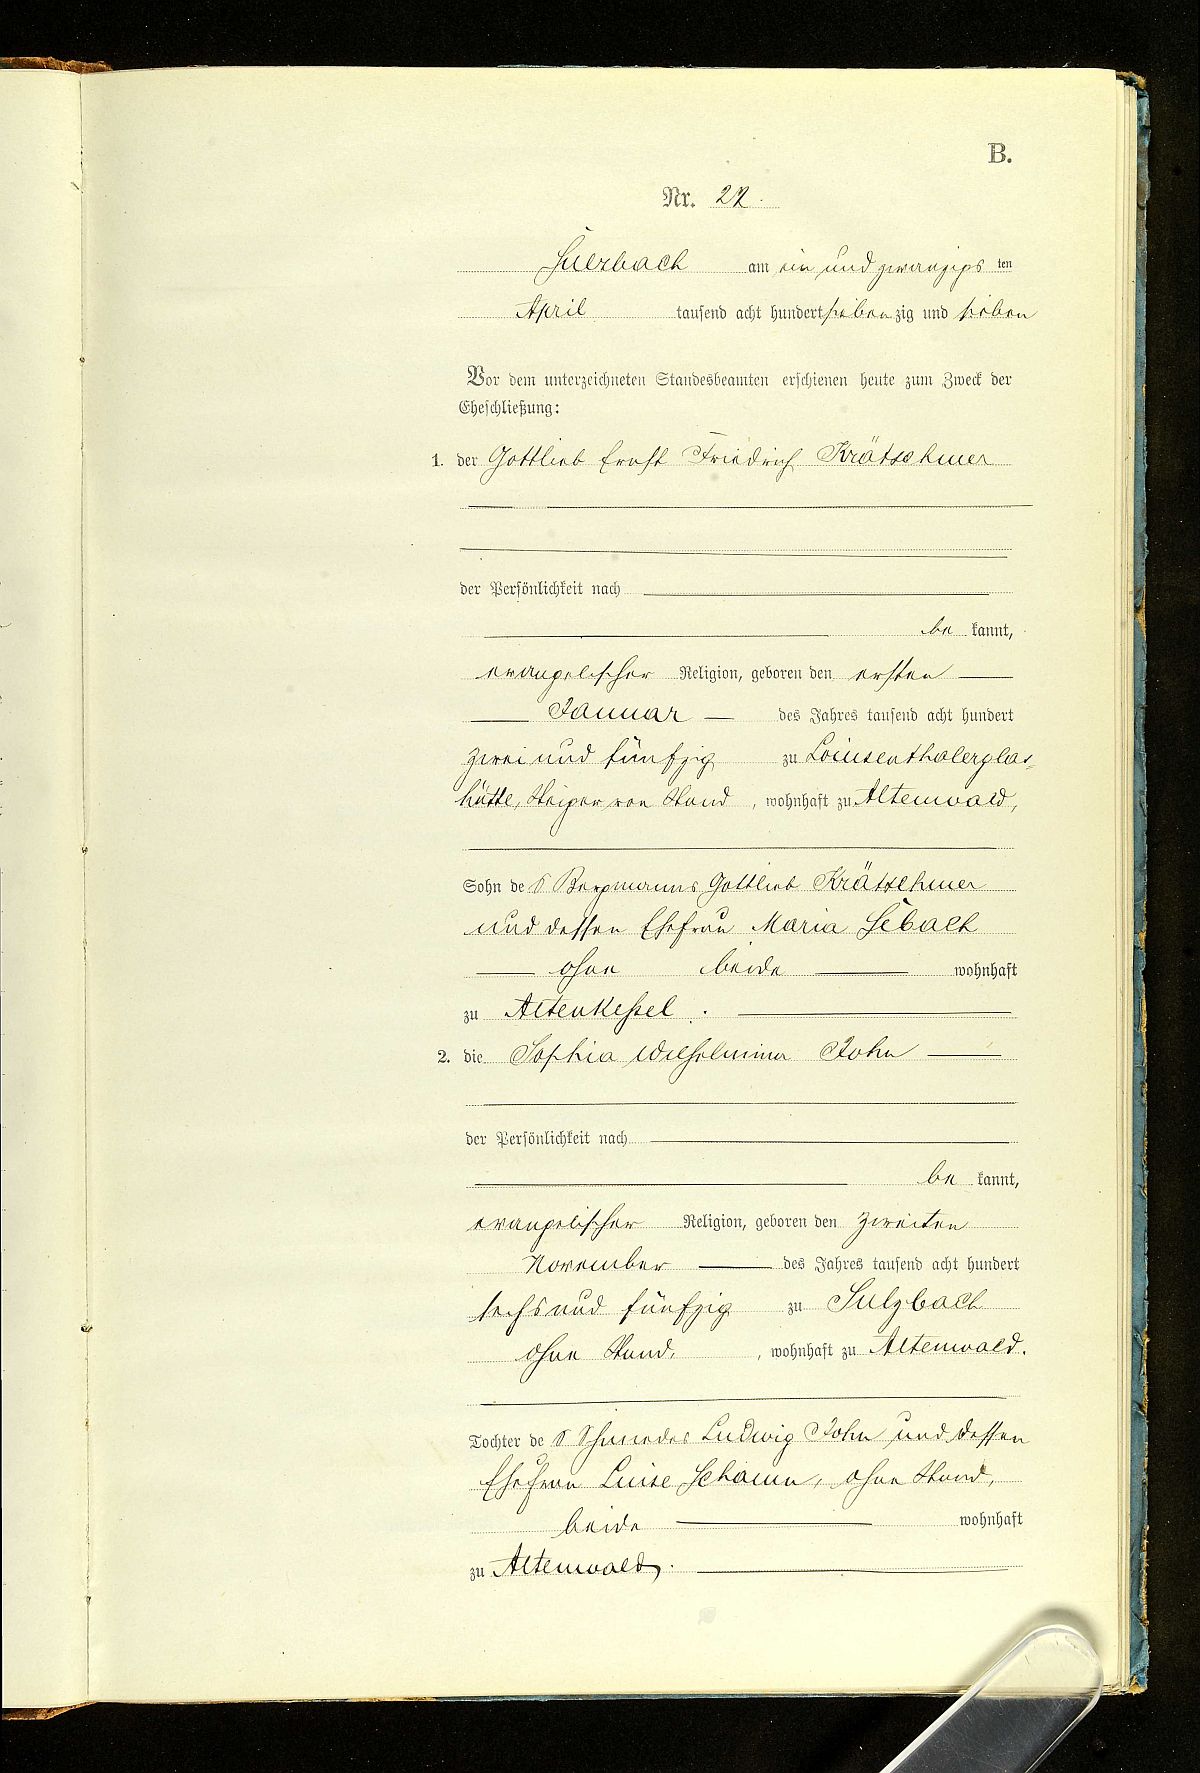 B.
Nr. 27.
Sulzbach am ein und zwanzigs ten
April tausend acht hundert sieben zig und sieben
Vor dem unterzeichneten Standesbeamten erschienen heute zum Zweck der
Eheschließung:
1. der Gottlieb Ernst Friedrich Krätschmer
der Persönlichkeit nach
be kannt,
evangelischer Religion, geboren den ersten
Januar des Jahres tausend acht hundert
zwei und fünfzig zu Louisenthalerglas-
hütte, Steiger von Stand, wohnhaft zu Altenwald,
Sohn de s Bergmanns Gottlieb Krätschmer
und dessen Ehefrau Maria Sebach
ohne beide wohnhaft
zu Altenkessel.
2. die Sophia Wilhelmina John
der Persönlichkeit nach
be kannt,
evangelischer Religion, geboren den zweiten
November des Jahres tausend acht hundert
sechs und fünfzig zu Sulzbach
ohne Stand, wohnhaft zu Altenwald.
Tochter de s Schmiedes Ludwig John und dessen
Ehefrau Luise Schamm, ohne Stand,
beide wohnhaft
zu Altenwald.